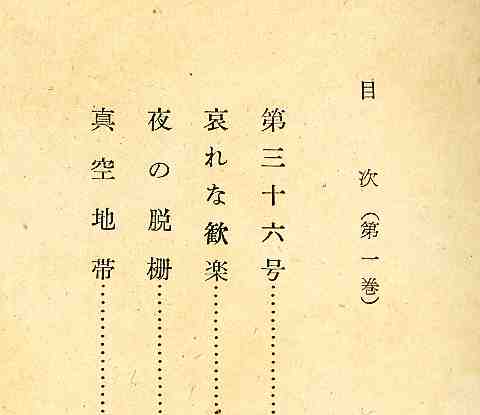 目次（第一巻）
第三十六号……………
哀れな歓楽……………
夜の脱柵……………
真空地帯……………